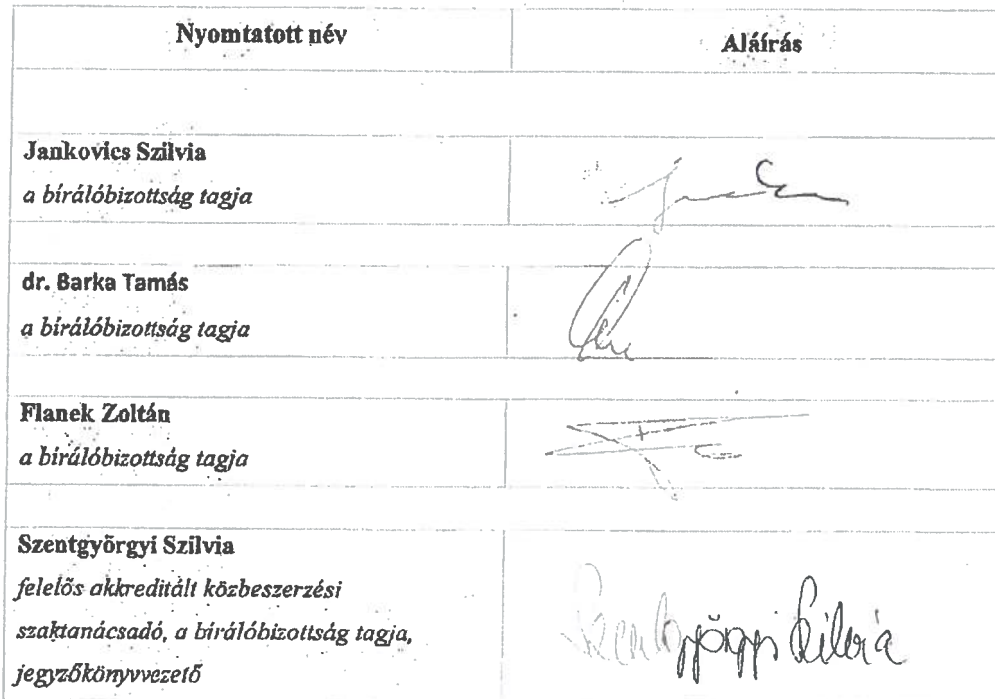 Nyomtatott név
Aláírás
Jankovics Szilvia
a bírálóbizottság tagja
dr. Barka Tamás
a bírálóbizottság tagja
Flanek Zoltán
a bírálóbizottság tagja
Szentgyörgyi Szilvia
felelős akkreditált közbeszerzési
szaktanácsadó, a bírálóbizottság tagja,
jegyzőkönyvvezető
Szentgyörgyi Szilvia